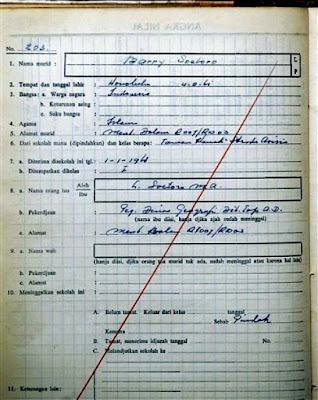 ANGKA NILAI
No. 203.
1. Nama murid : Barry Soetoro L P
2. Tempat dan tanggal lahir : Honolulu 4-8-61
3. Bangsa : a. Warga negara : Indonesia
b. Keturunan asing :
c. Suku bangsa :
4. Agama : Islam
5. Alamat murid : Ment. Dalam R007/R003
6. Dari sekolah mana (dipindahkan) dan kelas berapa :
7. a. Diterima disekolah ini tgl. : 1-1-1968
b. Ditempatkan dikelas : I
8. a. Nama orang tua Ajah Ibu : L. Soetoro M.A
b. Pekerdjaan : Peg. Dinas Geografi Dit. Top. A.D.
(nama ibu diisi, hanja djika ajah sudah meninggal)
c. Alamat : Ment. Dalam R007/R003
9. a. Nama wali :
(hanja diisi, djika orang tua murid tak ada, sudah meninggal atau karena hal lain)
b. Pekerdjaan :
c. Alamat :
10. Meninggalkan sekolah ini :
A. Belum tamat. Keluar dari kelas tanggal
Sebab Pindah
Kemana
B. Tamat, menerima idjazah tanggal No.
C. Melandjutkan sekolah ke
11. Keterangan lain :